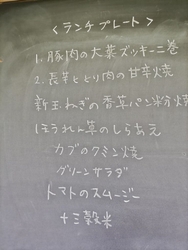 <ランチプレート>
1. 豚肉の大葉ズッキーニ巻
2. 長芋ととり肉の甘辛焼
新玉ねぎの香草パン粉焼
ほうれん草のしらあえ
カブのクミン焼
グリーンサラダ
トマトのスムージー
十三穀米